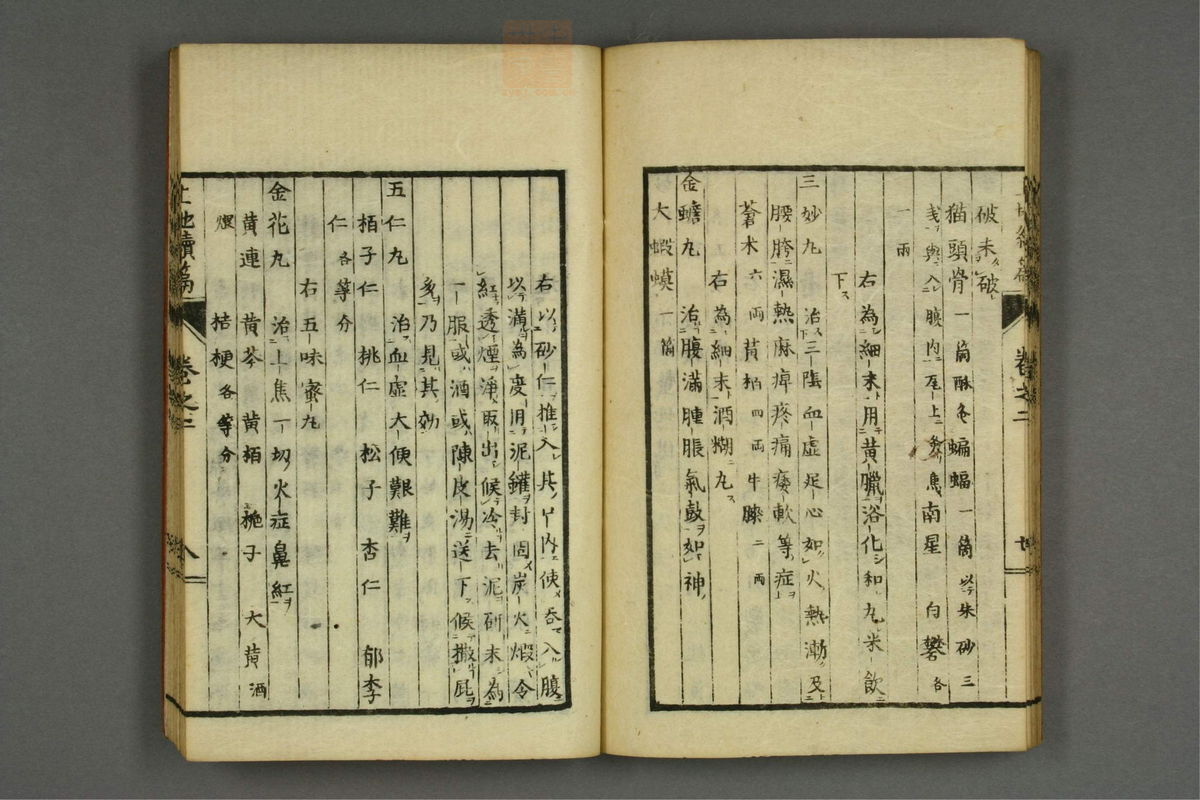 破未破
猫頭骨一箇酥炙蝙蝠一箇以朱砂三
戔與入腹内瓦上炙焦南星 白礬各
一兩
右為細末用黄臘浴化和丸米飲
下
三妙丸 治三陰血虚足心如火熱漸及
腰胯濕熱麻痺疼痛痿軟等症
蒼朮六兩黄栢四兩牛膝二兩
右為細末酒糊丸
金蟾丸 治腹滿腫脹氣鼓如神
大蝦蟆一箇
卷之二
七
右以砂仁推入其口内使呑入腹
以滿為度用泥鑵封固炭火煅令
紅透煙淨取出候冷去泥研末為
一服或酒或陳皮湯送下候撒屁
多乃見其効
五仁丸 治血虚大便艱難
栢子仁 桃仁 松子 杏仁 郁李
仁各等分
右五味蜜丸
金花丸 治上焦一切火症鼻紅
黄連 黄芩 黄栢 梔子 大黄酒
煨 桔梗各等分
上池續篇
卷之二
八